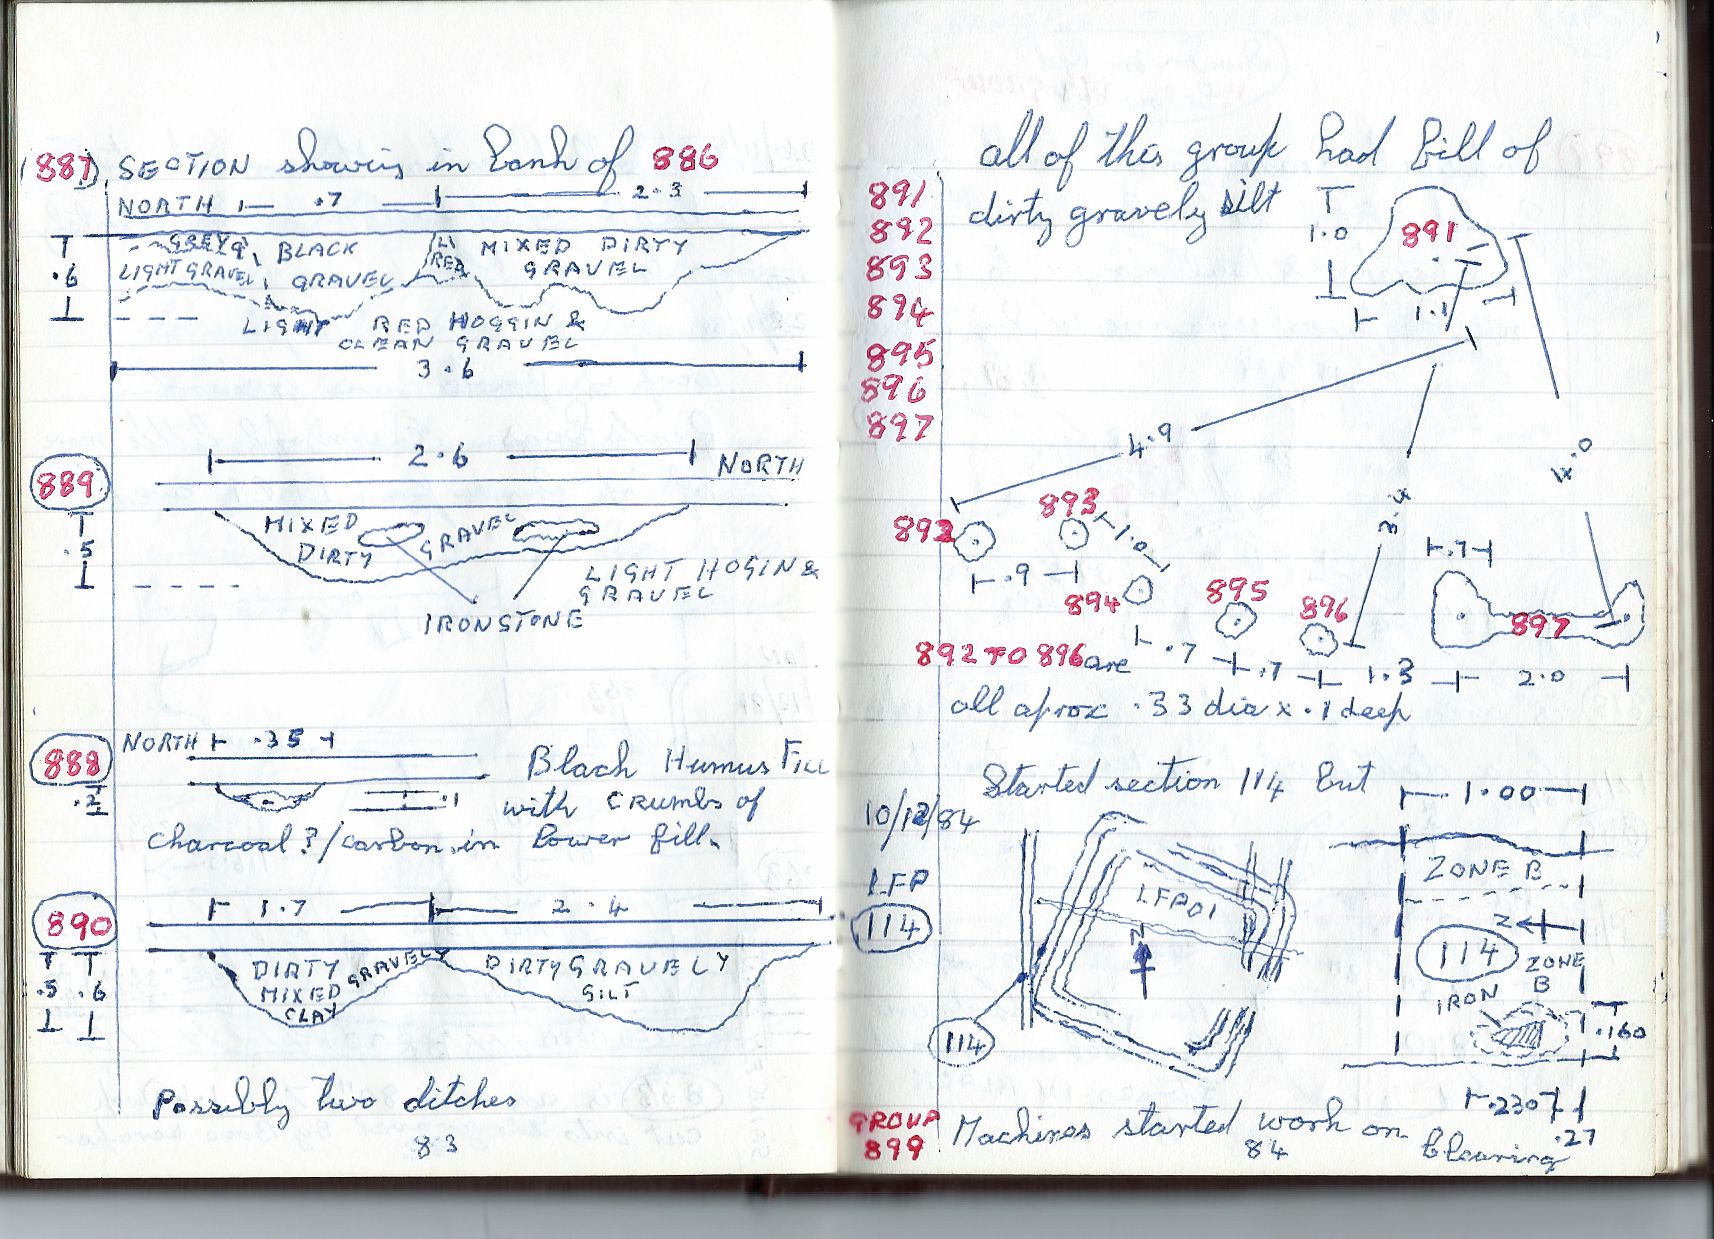 887) SECTION showing in bank of 886
NORTH .7 2.3
GREY BLACK LI MIXED DIRTY
.6 LIGHT GRAVEL GRAVEL RED GRAVEL
LIGHT RED HOGGIN &
CLEAN GRAVEL
3.6
889 2.6 NORTH
MIXED GRAVEL
.5 DIRTY
LIGHT HOGIN &
GRAVEL
IRONSTONE
NORTH .35
888 Black Humus Fill
.2 .1 with crumbs of
charcoal?/carbon in lower fill.
890 1.7 2.4
DIRTY GRAVELY DIRTY GRAVELY
.5 .6 MIXED SILT
CLAY
Possibly two ditches
83
all of this group had fill of
891 dirty gravely silt
892 1.0 891
893
894 1.1
895
896
897
4.9 4.0
3.4
892 893 1.0 .7
.9
894 895 896 897
892 TO 896 are .7 .7 1.3 2.0
all aprox .33 dia x .1 deep
Started section 114 but
10/12/84 1.00
LFP LFP01 ZONE B
114 N N
114 ZONE
B
IRON
114 .160
.230 .27
GROUP Machines started work on
899 84 clearing